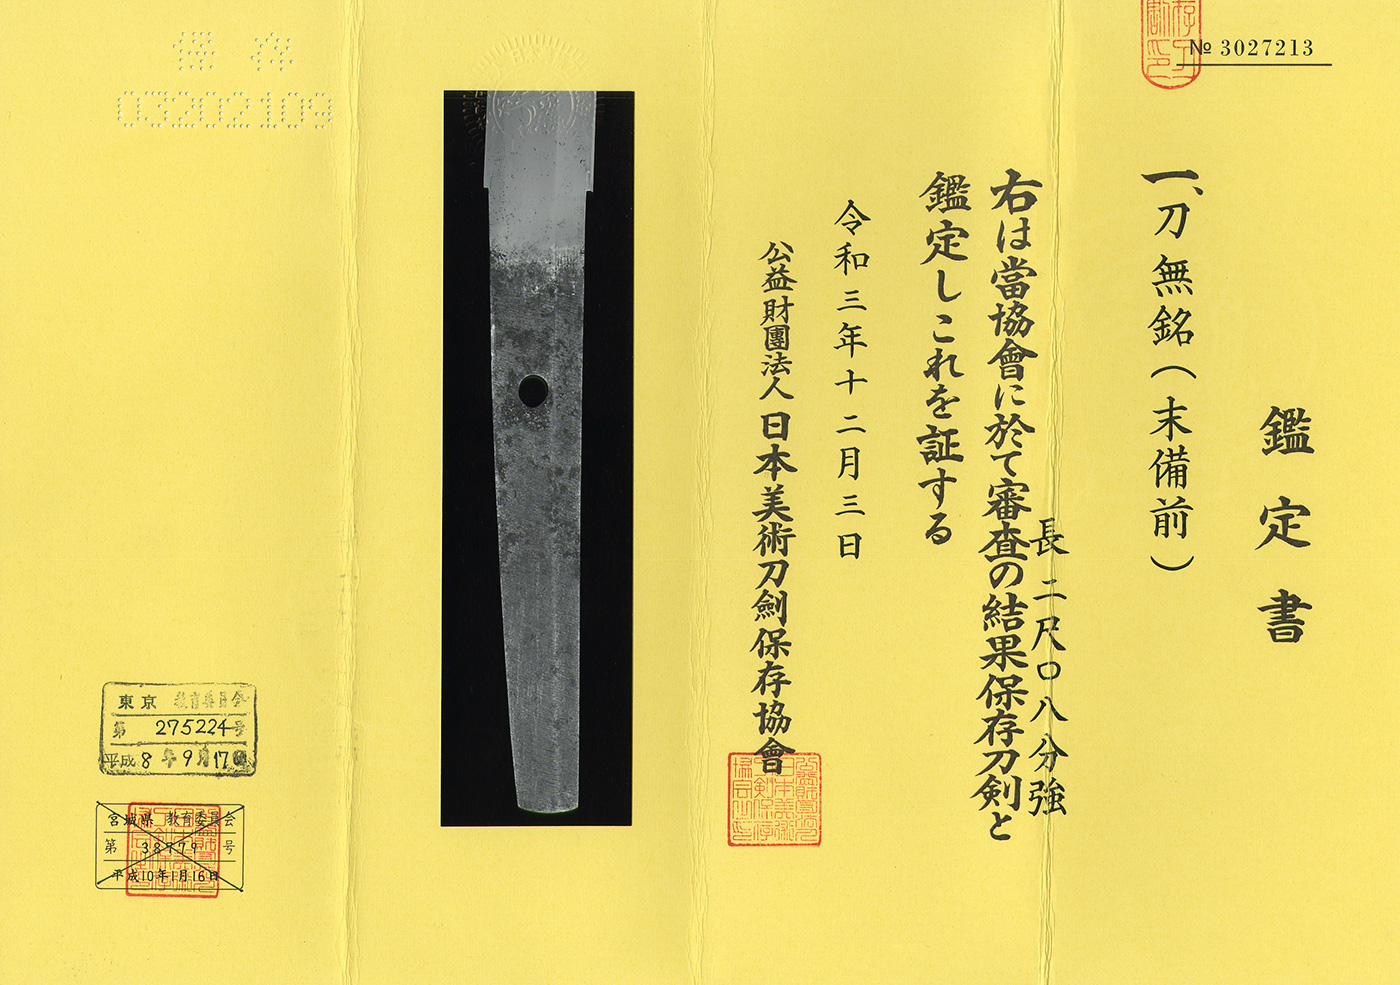 № 3027213
鑑定書
一、刀 無銘(末備前)
長 二尺〇八分強
右は當協會に於て審査の結果保存刀剣と
鑑定しこれを証する
令和三年十二月三日
公益財團法人 日本美術刀劍保存協會
保存
03202109
東京 教育委員会
第 275224号
平成8年9月17日
宮城県 教育委員会
第 38779 号
平成10年1月16日